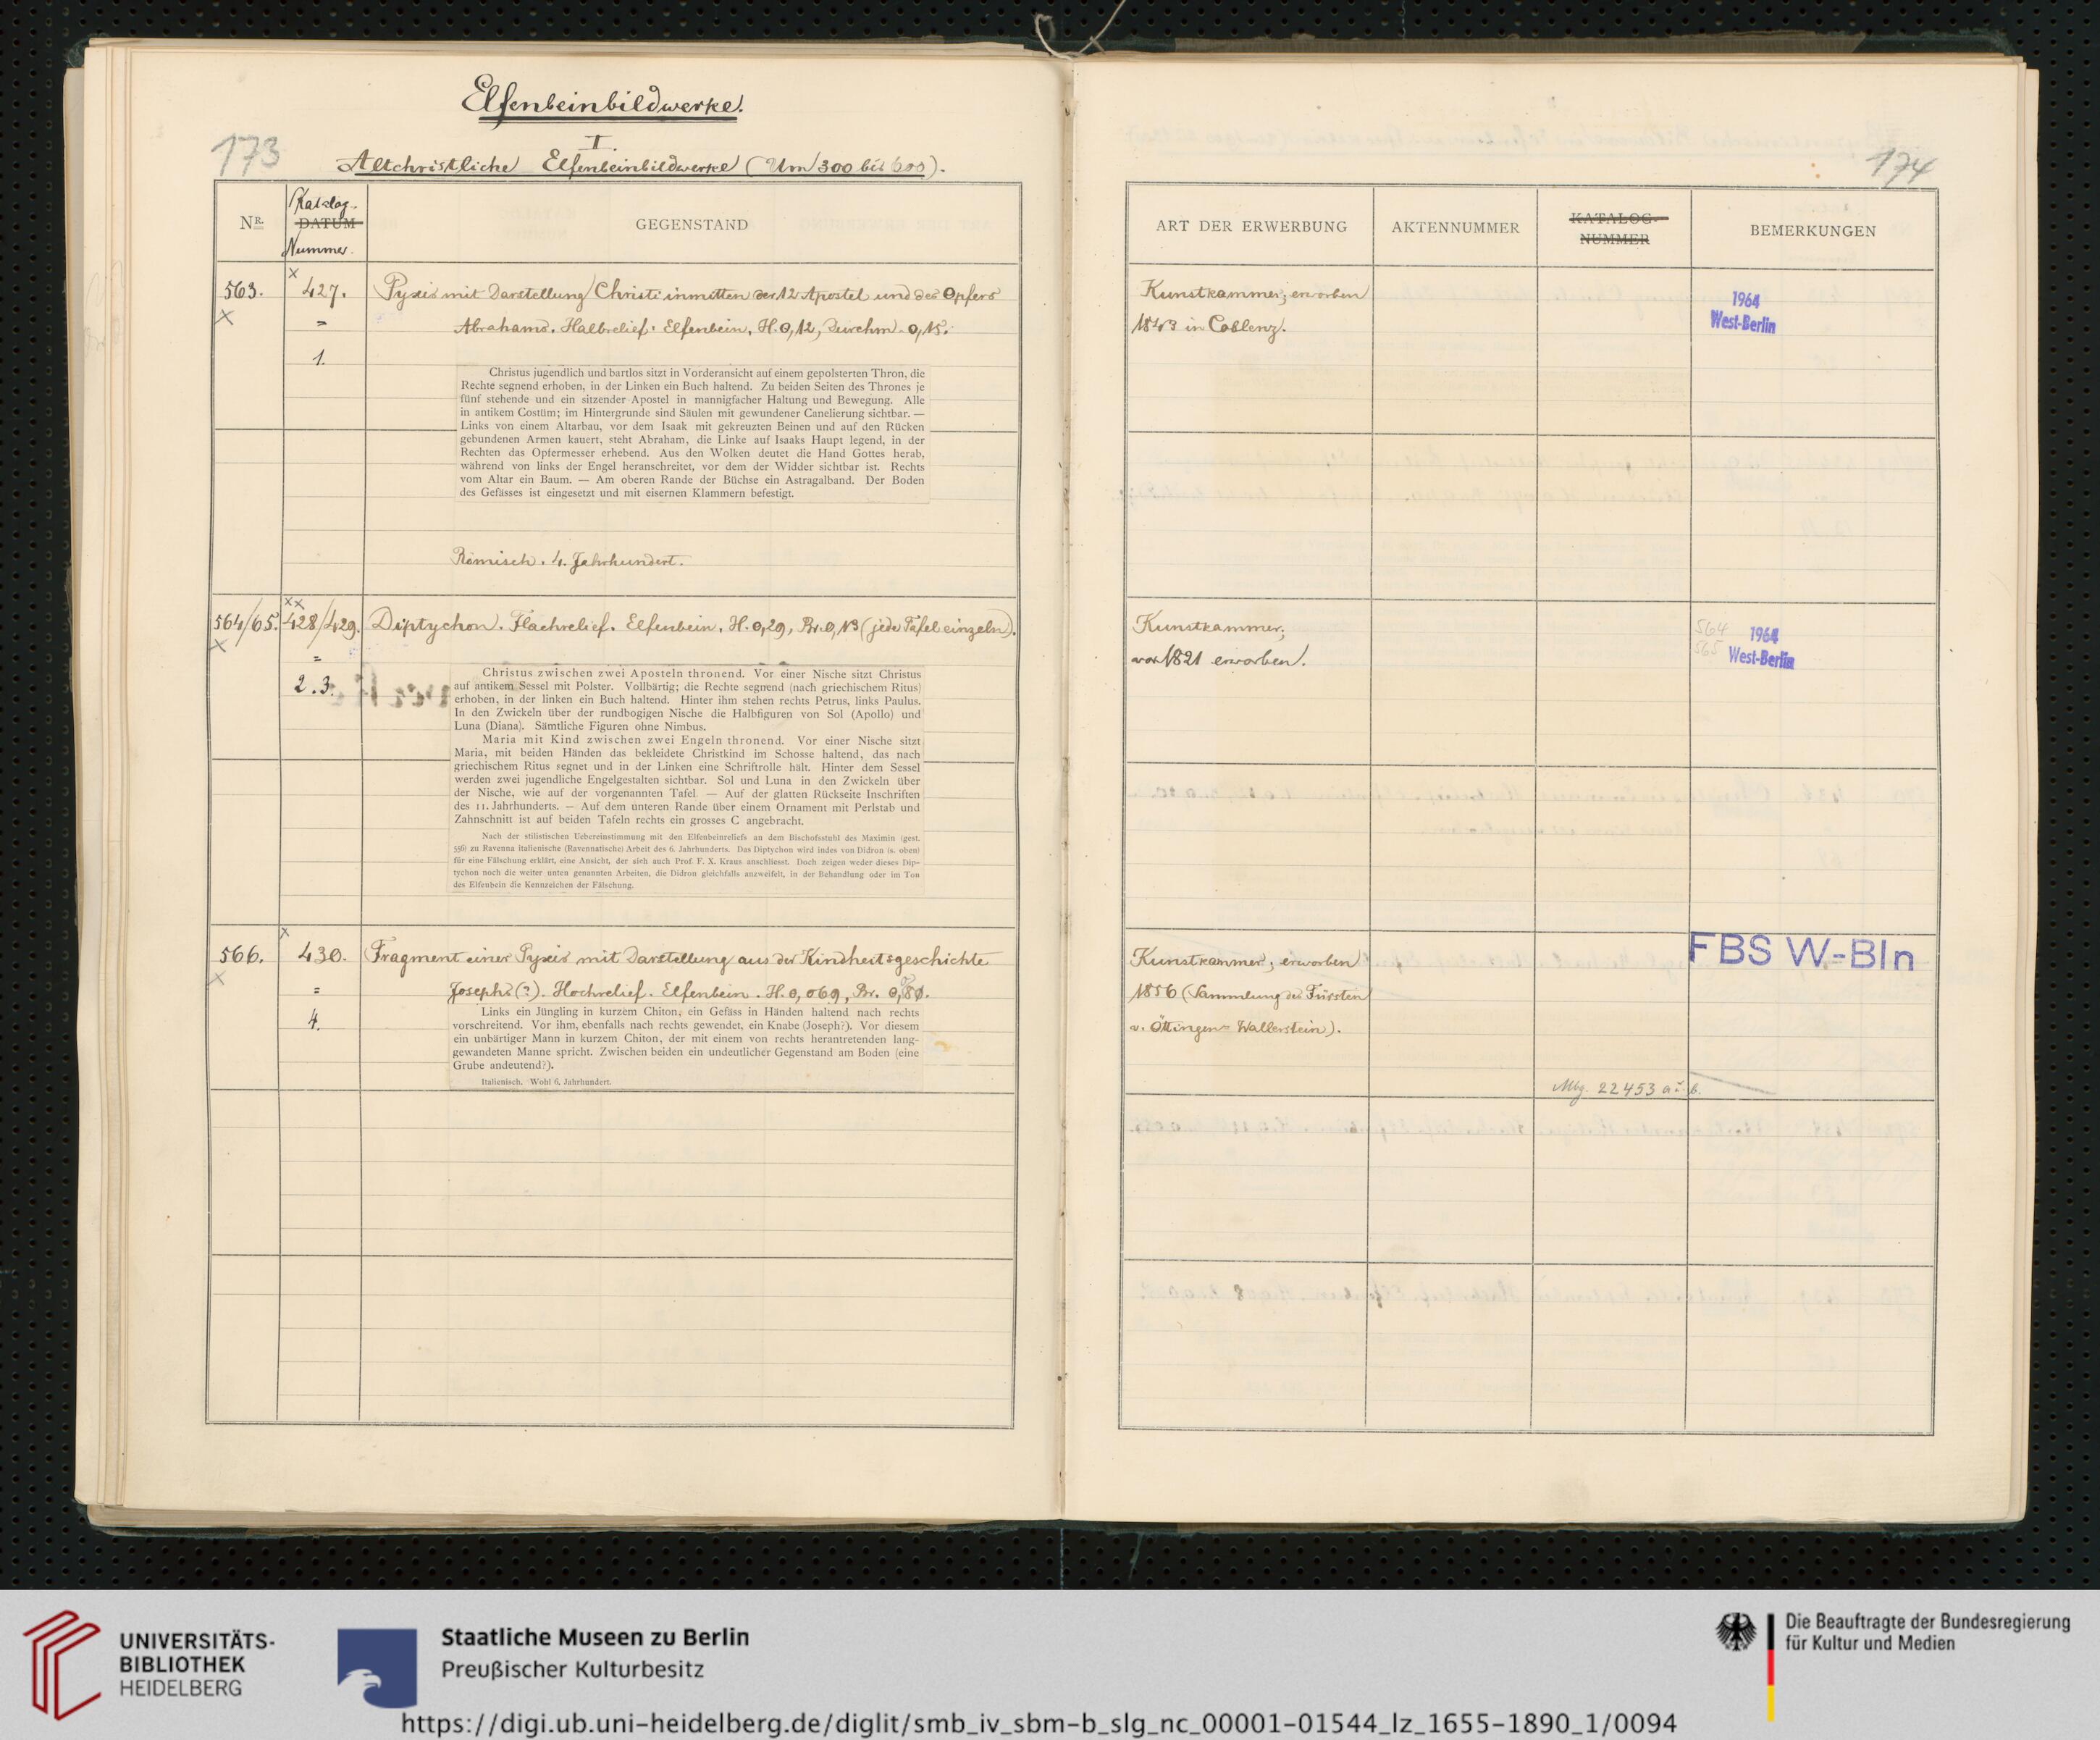 Elfenbeinbildwerke.
I.
173
Altchristliche Elfenbeinbildwerke (Um 300 bis 600).
Nr.
Katalog-
DATUM
Nummer.
GEGENSTAND
563.
427.
=
1.
Pyxis mit Darstellung Christi inmitten der 12 Apostel und des Opfers
Abrahams. Halbrelief. Elfenbein, H. 0,12, Durchm. 0,15.
Christus jugendlich und bartlos sitzt in Vorderansicht auf einem gepolsterten Thron, die
Rechte segnend erhoben, in der Linken ein Buch haltend. Zu beiden Seiten des Thrones je
fünf stehende und ein sitzender Apostel in mannigfacher Haltung und Bewegung. Alle
in antikem Costüm; im Hintergrunde sind Säulen mit gewundener Canelierung sichtbar. —
Links von einem Altarbau, vor dem Isaak mit gekreuzten Beinen und auf den Rücken
gebundenen Armen kauert, steht Abraham, die Linke auf Isaaks Haupt legend, in der
Rechten das Opfermesser erhebend. Aus den Wolken deutet die Hand Gottes herab,
während von links der Engel heranschreitet, vor dem der Widder sichtbar ist. Rechts
vom Altar ein Baum. — Am oberen Rande der Büchse ein Astragalband. Der Boden
des Gefässes ist eingesetzt und mit eisernen Klammern befestigt.
Römisch. 4. Jahrhundert.
564/65.
428/429.
=
2.3.
Diptychon. Flachrelief. Elfenbein, H. 0,29, Br. 0,13 (jede Tafel einzeln).
Christus zwischen zwei Aposteln thronend. Vor einer Nische sitzt Christus
auf antikem Sessel mit Polster. Vollbärtig; die Rechte segnend (nach griechischem Ritus)
erhoben, in der linken ein Buch haltend. Hinter ihm stehen rechts Petrus, links Paulus.
In den Zwickeln über der rundbogigen Nische die Halbfiguren von Sol (Apollo) und
Luna (Diana). Sämtliche Figuren ohne Nimbus.
Maria mit Kind zwischen zwei Engeln thronend. Vor einer Nische sitzt
Maria, mit beiden Händen das bekleidete Christkind im Schosse haltend, das nach
griechischem Ritus segnet und in der Linken eine Schriftrolle hält. Hinter dem Sessel
werden zwei jugendliche Engelgestalten sichtbar. Sol und Luna in den Zwickeln über
der Nische, wie auf der vorgenannten Tafel. — Auf der glatten Rückseite Inschriften
des 11. Jahrhunderts. — Auf dem unteren Rande über einem Ornament mit Perlstab und
Zahnschnitt ist auf beiden Tafeln rechts ein grosses C angebracht.
Nach der stilistischen Uebereinstimmung mit den Elfenbeinreliefs an dem Bischofsstuhl des Maximin (gest.
556) zu Ravenna italienische (Ravennatische) Arbeit des 6. Jahrhunderts. Das Diptychon wird indes von Didron (s. oben)
für eine Fälschung erklärt, eine Ansicht, der sich auch Prof. F. X. Kraus anschliesst. Doch zeigen weder dieses Dip-
tychon noch die weiter unten genannten Arbeiten, die Didron gleichfalls anzweifelt, in der Behandlung oder im Ton
des Elfenbein die Kennzeichen der Fälschung.
566.
430.
=
4.
Fragment einer Pyxis mit Darstellung aus der Kindheitsgeschichte
Josephs (?). Hochrelief. Elfenbein. H. 0,069, Br.
Links ein Jüngling in kurzem Chiton, ein Gefäss in Händen haltend nach rechts
vorschreitend. Vor ihm, ebenfalls nach rechts gewendet, ein Knabe (Joseph?). Vor diesem
ein unbärtiger Mann in kurzem Chiton, der mit einem von rechts herantretenden lang-
gewandeten Manne spricht. Zwischen beiden ein undeutlicher Gegenstand am Boden (eine
Grube andeutend?).
Italienisch. Wohl 6. Jahrhundert.
174
ART DER ERWERBUNG
AKTENNUMMER
KATALOG-
NUMMER
BEMERKUNGEN
Kunstkammer; erworben
1843 in Coblenz.
1964
West-Berlin
Kunstkammer;
vor 1821 erworben.
564
565
1964
West-Berlin
Kunstkammer; erworben
1856 (Sammlung des Fürsten
v. Öttingen-Wallerstein).
FBS W-Bln
Mbg. 22453 a u. b.
UNIVERSITÄTS-
BIBLIOTHEK
HEIDELBERG
Staatliche Museen zu Berlin
Preußischer Kulturbesitz
Die Beauftragte der Bundesregierung
für Kultur und Medien
https://digi.ub.uni-heidelberg.de/diglit/smb_iv_sbm-b_slg_nc_00001-01544_lz_1655-1890_1/0094